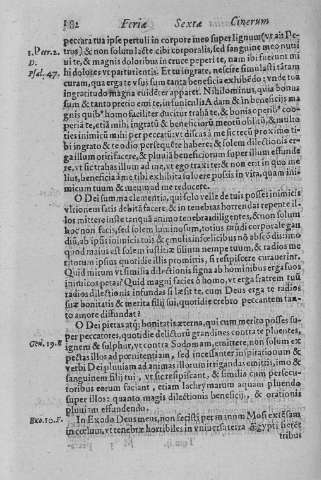 382 Feriæ Sextæ Cinerum
1.Petr.2.
D.
Psal.47.
peccata tua ipse pertuli in corpore meo super lignum (vt ait Pe-
trus) & non solum lacte cibi corporalis, sed sanguine meo nutri
ui te, & magnis doloribus in cruce peperi te, nam ibi fuerunt mi
hi dolores vt parturientis. Et tu ingrate, nescire simulasti tātam
curam, qua erga te vsus sum tanta beneficia exhibēdo; vnde tua
ingratitudo magna euidēter apparet. Nihilominus, quia bonus
sum & tanto precio emi te, in funiculis Adam & in beneficijs ma
gnis quib⁹ homo faciliter ducitur trahā te, & bonis operib⁹
periā te, etiā mihi, ingratū & beneficiorū meorū oblitū, & multo
ties inimicū mihi per peccatū: vt discas à me sic tecū proximo ti-
bi ingrato & te odio persequēte habere; & solem dilectionis er-
ga illum oriri facere, & pluuiā beneficiorum super illum effunde
re, vt sic trahas illum ad me, vt ego traxi te: & non erit in quo me
lius, beneficia à me tibi exhibita soluere possis in vita, quam ini-
micum tuum & meum ad me reducere.
O Dei summa clementia, qui solo velle de tuis posses inimicis
vltionem satis debitā facere, & in tenebras horrendas repente il-
los mittere in iste tanquā animo tenebras diligentes, & non solum
hoc non facis, sed solem luminosum, totius mūdi corporale gau
diū, ab ipsis inimicis tuis & multis infœlicibus nō abscōdis: imo
quod maius est solem iustitiæ filium nempe tuum, & radios me
ritorum ipsius quotidie illis promittis, si respiscere curauerint.
Quid mirum vt similia dilectionis signa ab hominibus erga suos
inimicos petas? Quid magni facies ô homo, vt erga fratrem tuū
radios dilectionis infundas si læsit te, cum Deus erga te radios
suæ bonitatis & merita filij sui, quotidie crebto peccantem tan-
to amore diffundat?
O Dei pietas atq; bonitatis æterna, qui cum merito posses su-
Gen. 19.E
per peccatores, quotidie delictorū grandines contra te pluentes,
ignem & sulphur, vt contra Sodomam, emittere, non solum ex
pectas illos ad pœnitentiam, sed incessanter inspirationum &
verbi Dei pluuiam ad animas illorum irrigandas emittis, imo &
sanguinem filij tui, vt sic respiscant, & similia cum persecu-
toribus eorum faciant, etiam lachrymarum aquam pluendo
super illos: quanto magis dilectionis beneficij, & orationis
pluuiam effundendo.
Exo.10.F.
In Exodo Deus meus, non fecisti per manum Mosi extēsam
in cœlum, vt tenebræ horribiles in vniuersa terra Ægypti fierēt
tribus